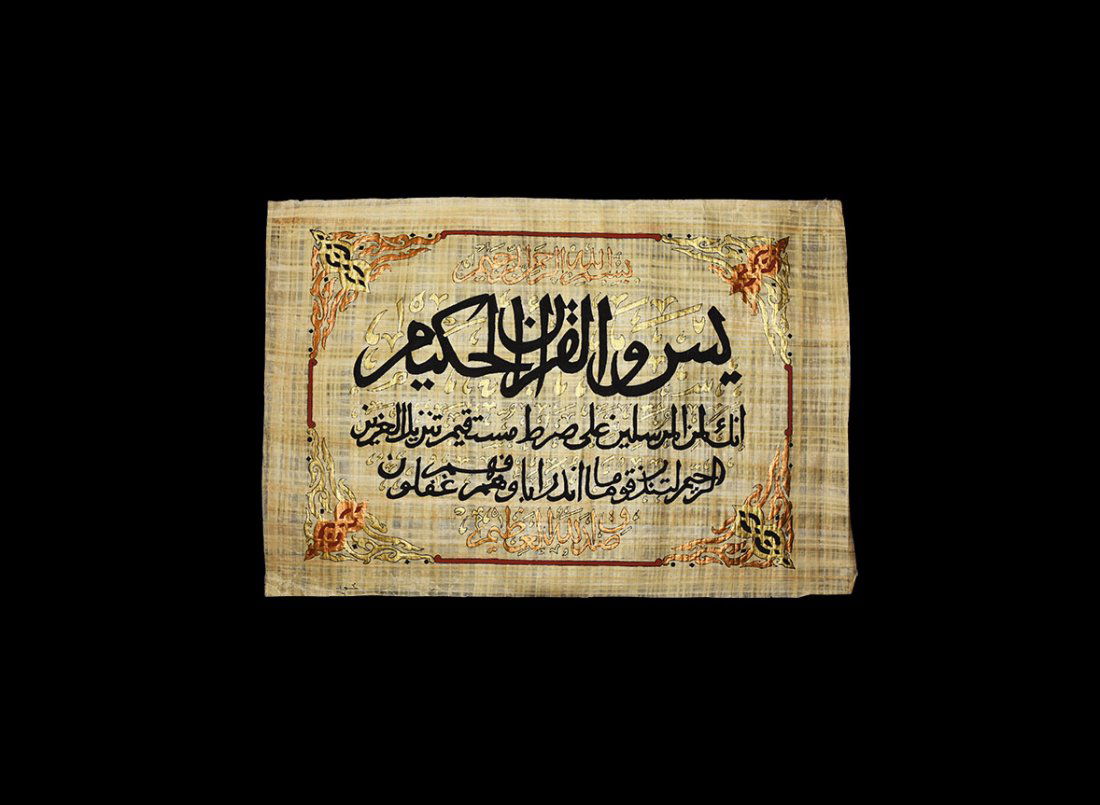 بسم الله الرحمن الرحيم
يس والقران الحكيم
انك لمن المرسلين على صرط مستقيم تنزيل العزيز
الرحيم لتنذر قوما ما انذر اباوهم فهم غفلون
صدق الله العظيم